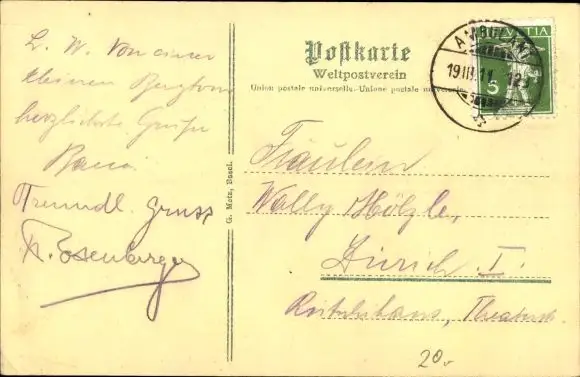 L. W. Von einer
kleinen
herzlichste Grüsse
Freundl. Gruss
Rosenberger
G. Metz, Basel.
Postkarte
Weltpostverein
Union postale universelle.-Unione postale universale
AMBULANT
19.III.11
HELVETIA
5
Fräulein
Wally Hölzle,
Zürich I.
20.-